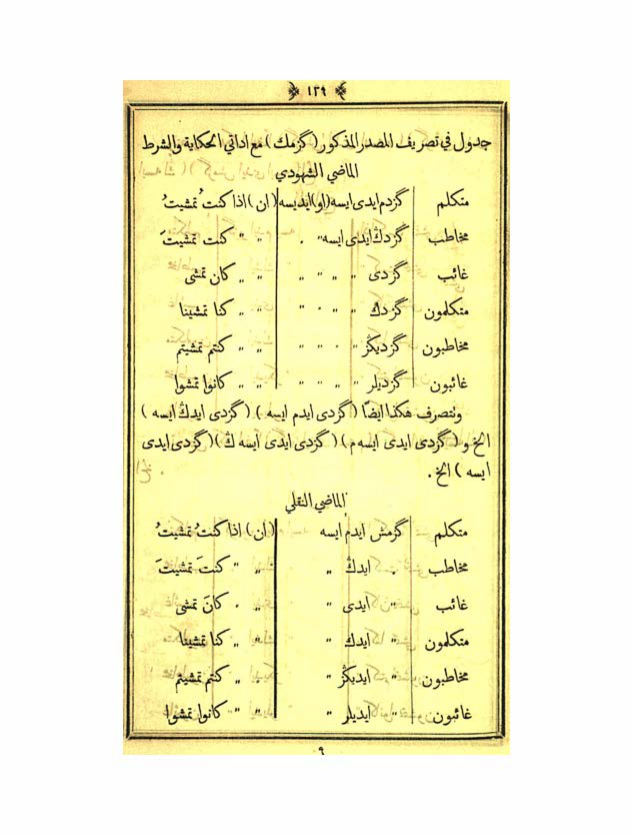 ﴿ ١٢٩ ﴾
جدول في تصريف المصدر المذكور (گزمك) مع اداتي الحكاية والشرط
الماضي الشهودي
متكلم گزدم ايدى ايسه (او) ايديسه (ان) اذا كنتُ تمشيتُ
مخاطب گزدڭ ايدى ايسه „ „ „ „ كنت تمشيتَ
غائب گزدى „ „ „ „ „ „ كان تمشى
متكلمون گزدك „ „ „ „ „ „ كنا تمشينا
مخاطبون گزديڭز „ „ „ „ „ „ كنتم تمشيتم
غائبون گزديلر „ „ „ „ „ „ كانوا تمشوا
وتتصرف هكذا ايضًا (گزدى ايدم ايسه) (گزدى ايدڭ ايسه)
الخ و (گزدى ايدى ايسه م) (گزدى ايدى ايسه ڭ) (گزدى ايدى
ايسه) الخ.
الماضي النقلي
متكلم گزمش ايدم ايسه (ان) اذا كنتُ تمشيتُ
مخاطب „ ايدڭ „ „ „ كنتَ تمشيتَ
غائب „ ايدى „ „ „ كانَ تمشى
متكلمون „ ايدك „ „ „ كنا تمشينا
مخاطبون „ ايديڭز „ „ „ كنتم تمشيتم
غائبون „ ايديلر „ „ „ كانوا تمشوا
٩